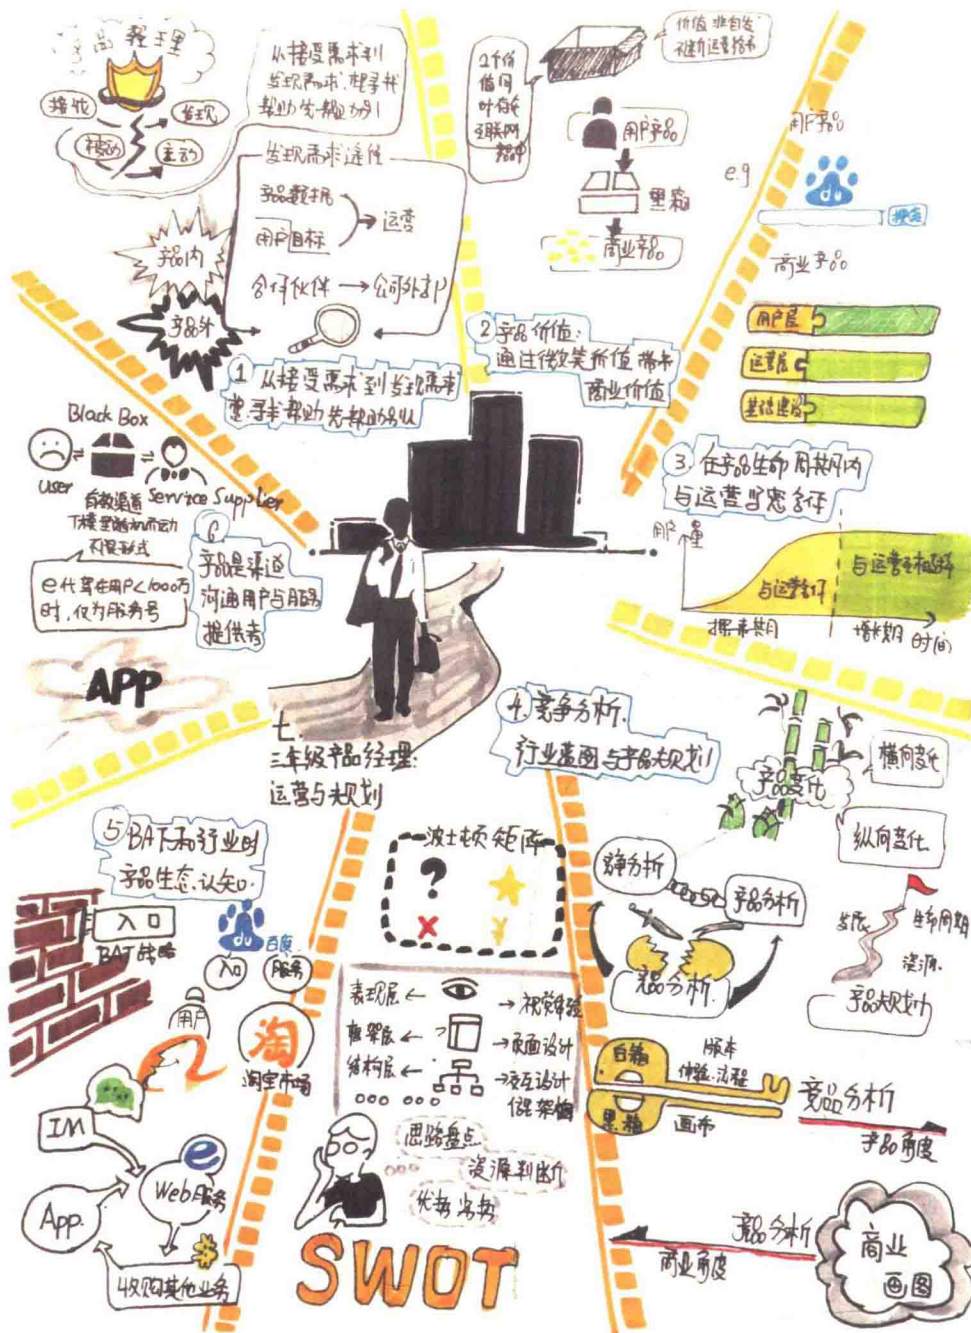 产品经理
接收
发现
被动
主动
从接受需求到
发现需求,想寻求
帮助先帮助别人
发现需求途径
产品数据
用户目标
运营
合作伙伴
公司外部
产品内
产品外
① 从接受需求到发现需求
想寻求帮助 先帮助别人
价值:非自发
2个价
值间
互联网
用户产品
黑箱
商业产品
② 产品价值:
通过微笑价值 带来
商业价值
e.g
用户产品
du
搜索
商业产品
用户层
运营层
基础建设
③ 在产品生命周期内
与运营
用户量
与运营合作
与运营互相
探索期
增长期
时间
Black Box
User
Service Supplier
有效渠道
e代驾在用户<1000万
时,仅为服务号
⑥
产品是渠道
沟通用户与服务
提供者
APP
七.
三年级产品经理:
运营与规划
④ 竞争分析.
行业蓝图与产品规划
产品变化
横向变化
纵向变化
竞争分析
产品分析
竞品分析.
发展
生命周期
资源.
产品规划
⑤ BAT和行业时
产品生态认知.
入口
BAT战略
du
百度
入口
服务
用户
淘
淘宝市场
IM
App.
Web服务
收购其他业务
波士顿矩阵
?
×
¥
表现层
视觉体验
框架层
页面设计
结构层
交互设计
信息架构
思路盘点
资源判断
优势劣势
SWOT
白箱
版本
体验.流程
黑箱
画布
竞品分析
产品角度
竞品分析
商业角度
商业
画图